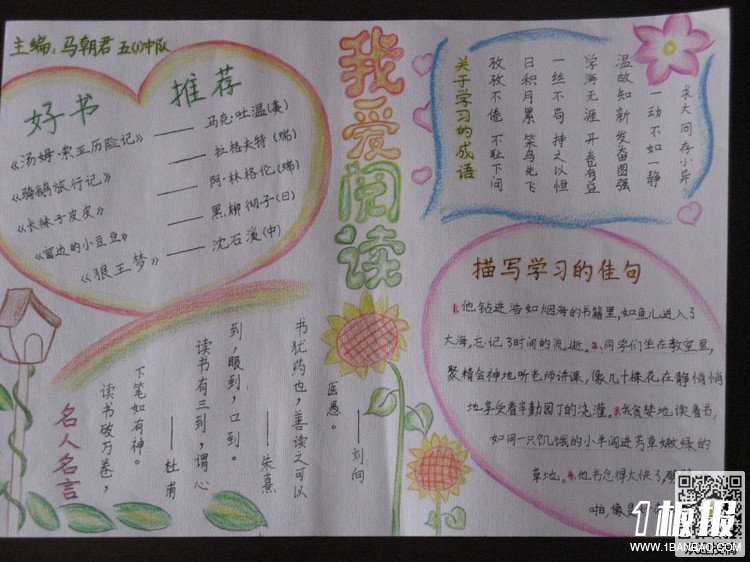 主编：马朝君 五(1)中队
好书 推荐
《汤姆·索亚历险记》——马克·吐温(美)
《骑鹅旅行记》——拉格夫特(瑞)
《长袜子皮皮》——阿·林格伦(瑞)
《窗边的小豆豆》——黑柳彻子(日)
《狼王梦》——沈石溪(中)
我爱阅读
关于学习的成语
孜孜不倦 不耻下问
日积月累 笨鸟先飞
一丝不苟 持之以恒
学海无涯 开卷有益
温故知新 发奋图强
一动不如一静
求大同存小异
名人名言
读书破万卷，
下笔如有神。
——杜甫
读书有三到，谓心
到，眼到，口到。
——朱熹
书犹药也，善读之可以
医愚。
——刘向
描写学习的佳句
1.他钻进浩如烟海的书籍里，如鱼儿进入了
大海，忘记了时间的流逝。2.同学们坐在教室里，
聚精会神地听老师讲课，像几十棵花在静悄悄
地享受着辛勤园丁的浇灌。3.我贪婪地读着书，
如同一只饥饿的小羊闯进芳草嫩绿的
草地。4.他书念得太快了，
啪，像是
1板报
WWW.1BANBAO.COM